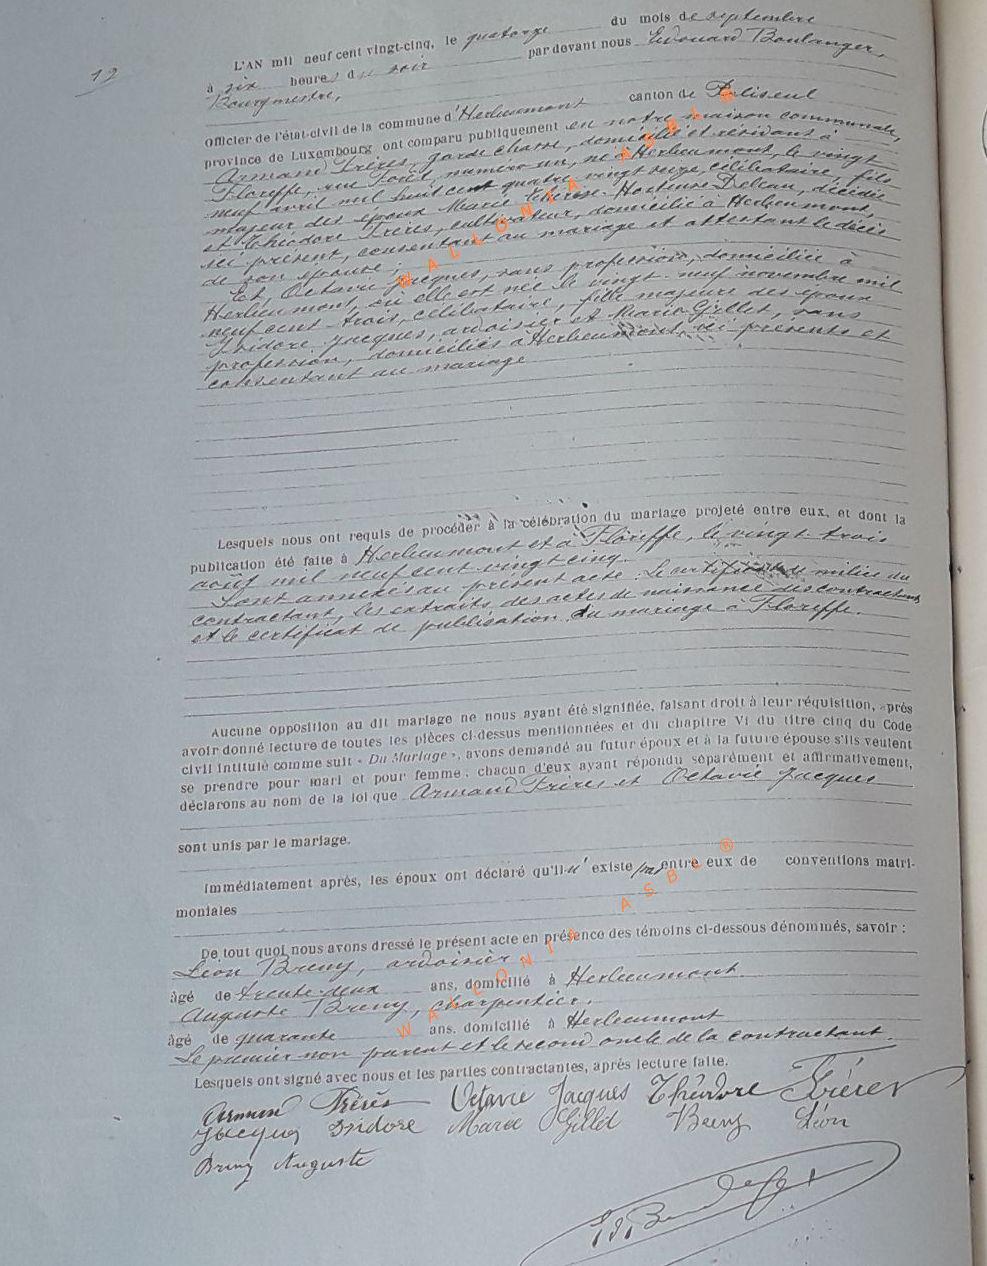 12
L'AN mil neuf cent vingt-cinq, le quatorze du mois de septembre
à six heures du soir par devant nous Edouard Boulanger,
Bourgmestre,
officier de l'état-civil de la commune d'Herbeumont canton de Paliseul
province de Luxembourg ont comparu publiquement en notre maison communale,
Armand Frères, garde chasse, domicilié et résidant à
Floreffe, rue numéro un, né à Herbeumont, le vingt
neuf avril mil huit cent quatre vingt seize, célibataire, fils
majeur des époux Marie Thérèse Hortense décédée
et Théodore Frères, cultivateur, domicilié à Herbeumont,
ici présent, consentant au mariage et attestant le décès
de son épouse ;
Et, Octavie Jacques, sans profession, domiciliée à
Herbeumont, où elle est née le vingt-neuf novembre mil
neuf cent trois, célibataire, fille majeure des époux
Isidore Jacques, ardoisier et Marie Gillet, sans
profession, domiciliés à Herbeumont, ici présents et
consentant au mariage
Lesquels nous ont requis de procéder à la célébration du mariage projeté entre eux, et dont la
publication été faite à Herbeumont et à Floreffe, le vingt-trois
août mil neuf cent vingt cinq.
Sont annexés au présent acte : Le certificat de milice du
contractant, les extraits des actes de naissance des contractants
et le certificat de publication du mariage à Floreffe.
Aucune opposition au dit mariage ne nous ayant été signifiée, faisant droit à leur réquisition, après
avoir donné lecture de toutes les pièces ci-dessus mentionnées et du chapitre VI du titre cinq du Code
civil intitulé comme suit « Du Mariage », avons demandé au futur époux et à la future épouse s'ils veulent
se prendre pour mari et pour femme : chacun d'eux ayant répondu séparément et affirmativement,
déclarons au nom de la loi que Armand Frères et Octavie Jacques
sont unis par le mariage.
Immédiatement après, les époux ont déclaré qu'il n'existe pas entre eux de conventions matri-
moniales
De tout quoi nous avons dressé le présent acte en présence des témoins ci-dessous dénommés, savoir :
Léon Breny, ardoisier
âgé de trente-deux ans, domicilié à Herbeumont.
Auguste Breny, charpentier,
âgé de quarante ans, domicilié à Herbeumont
Le premier non parent et le second oncle de la contractant.
Lesquels ont signé avec nous et les parties contractantes, après lecture faite.
Armand Frères Octavie Jacques Théodore Frères
Jacques Isidore Marie Gillet Breny Léon
Breny Auguste
WALLONIA ASBL®
WALLONIA ASBL®